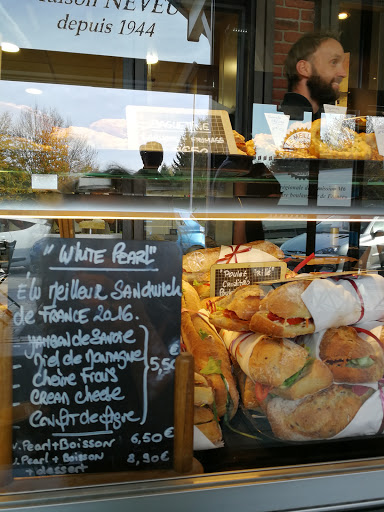 Maison NEVEU
depuis 1944
"WHITE PEARL"
Élu Meilleur Sandwich
de France 2016.
Jambon de Savoie
Miel de Montagne
chèvre Frais
Cream cheese
Confit de figue
5,50€
W. Pearl + Boisson 6,50€
W. Pearl + Boisson
+ dessert 8,90€
Poulet
Crudités